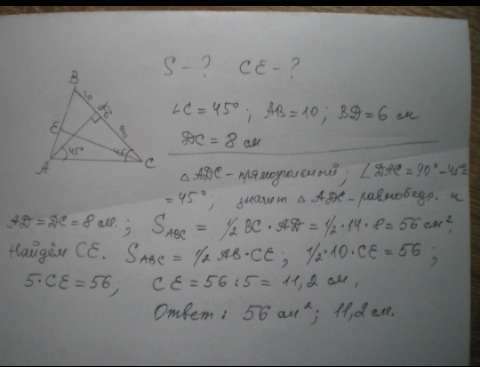 S - ? CE - ?
∠C = 45°; AB = 10; BD = 6 см
DC = 8 см
△ADC - прямоугольный; ∠DAC = 90° - 45° =
= 45°, значит △ADC - равнобедр. и
AD = DC = 8 см.; S ABC = 1/2 BC · AD = 1/2 · 14 · 8 = 56 см²,
Найдём CE. S ABC = 1/2 AB · CE; 1/2 · 10 · CE = 56;
5 · CE = 56, CE = 56 : 5 = 11,2 см,
Ответ: 56 см²; 11,2 см.
B
E
A
45°
C